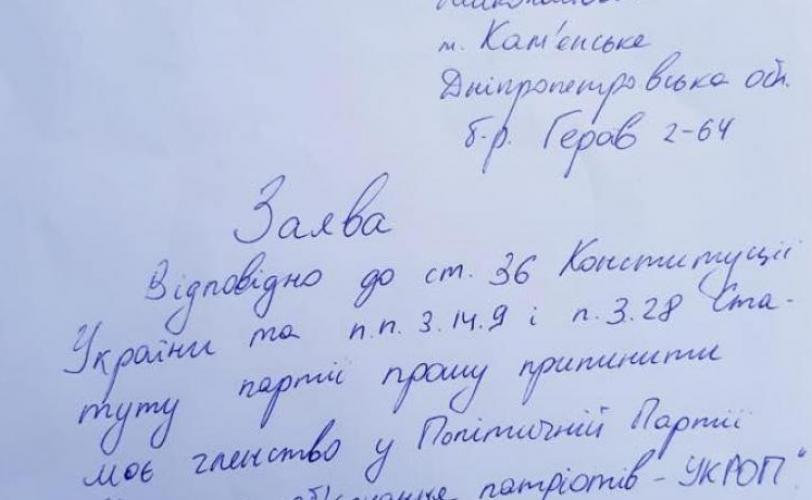 м. Кам'янське
Дніпропетровська обл.
б-р. Героїв 2-64
Заява
Відповідно до ст. 36 Конституції
України та п.п. 3.14.9 і п. 3.28 Ста-
туту партії прошу припинити
моє членство у Політичній Партії
патріотів - УКРОП"